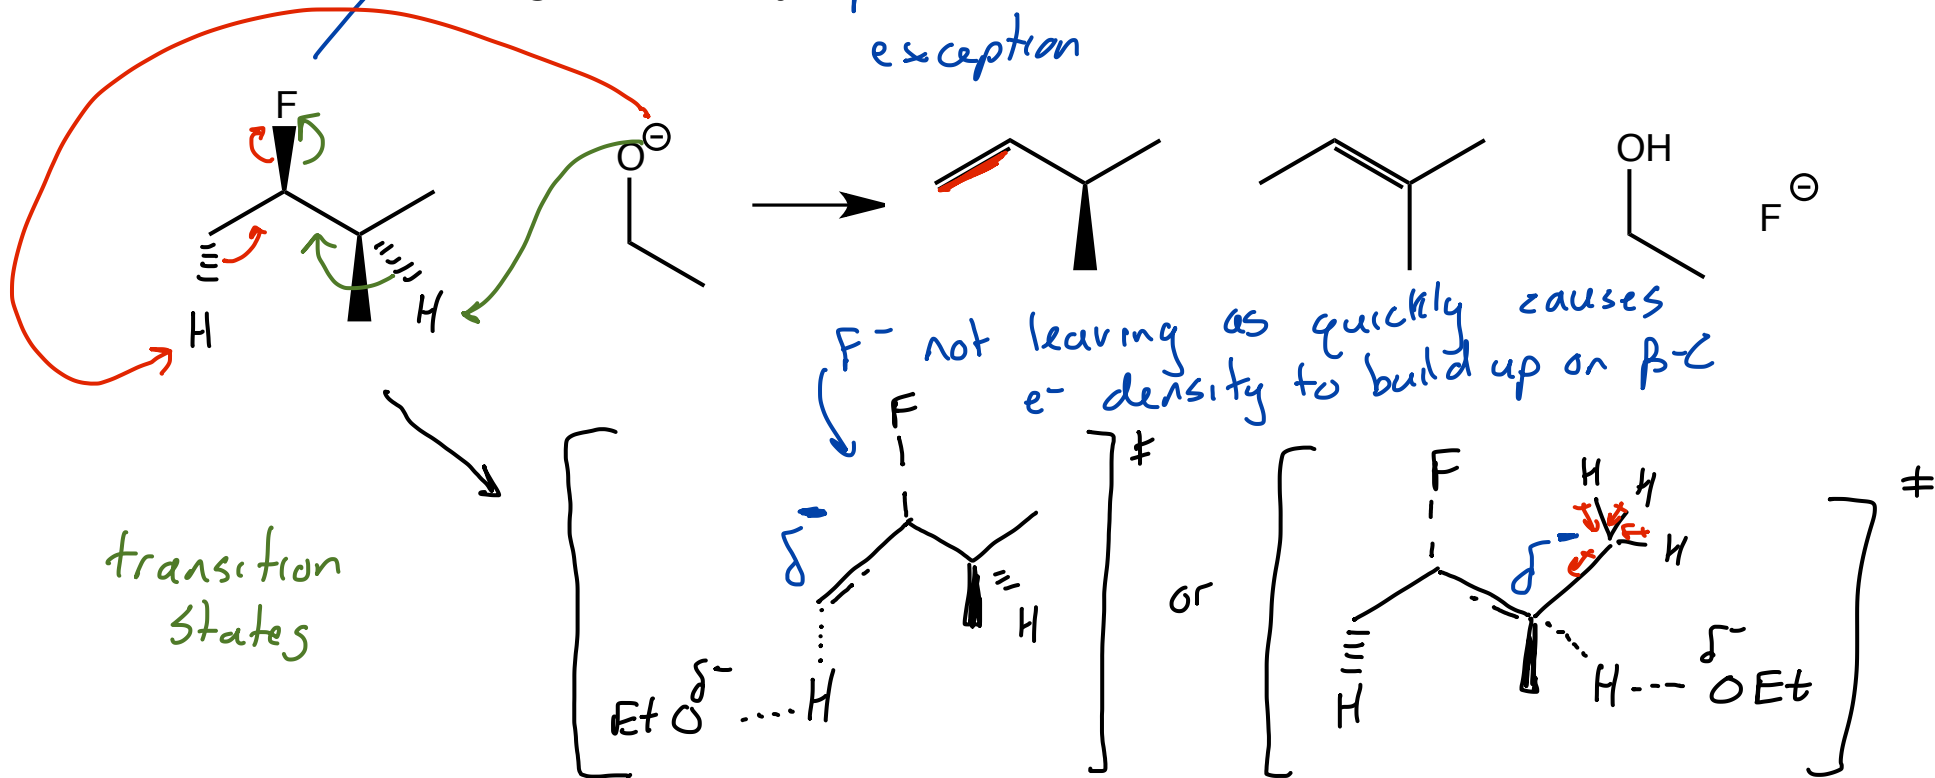 exception
F
O
⊖
H
H
OH
F
⊖
F⁻ not leaving as quickly causes
e⁻ density to build up on β-C
transition
states
F
δ⁻
H
δ⁻
EtO
H
‡
or
F
H
H
H
δ⁻
H
H
δ⁻
OEt
‡